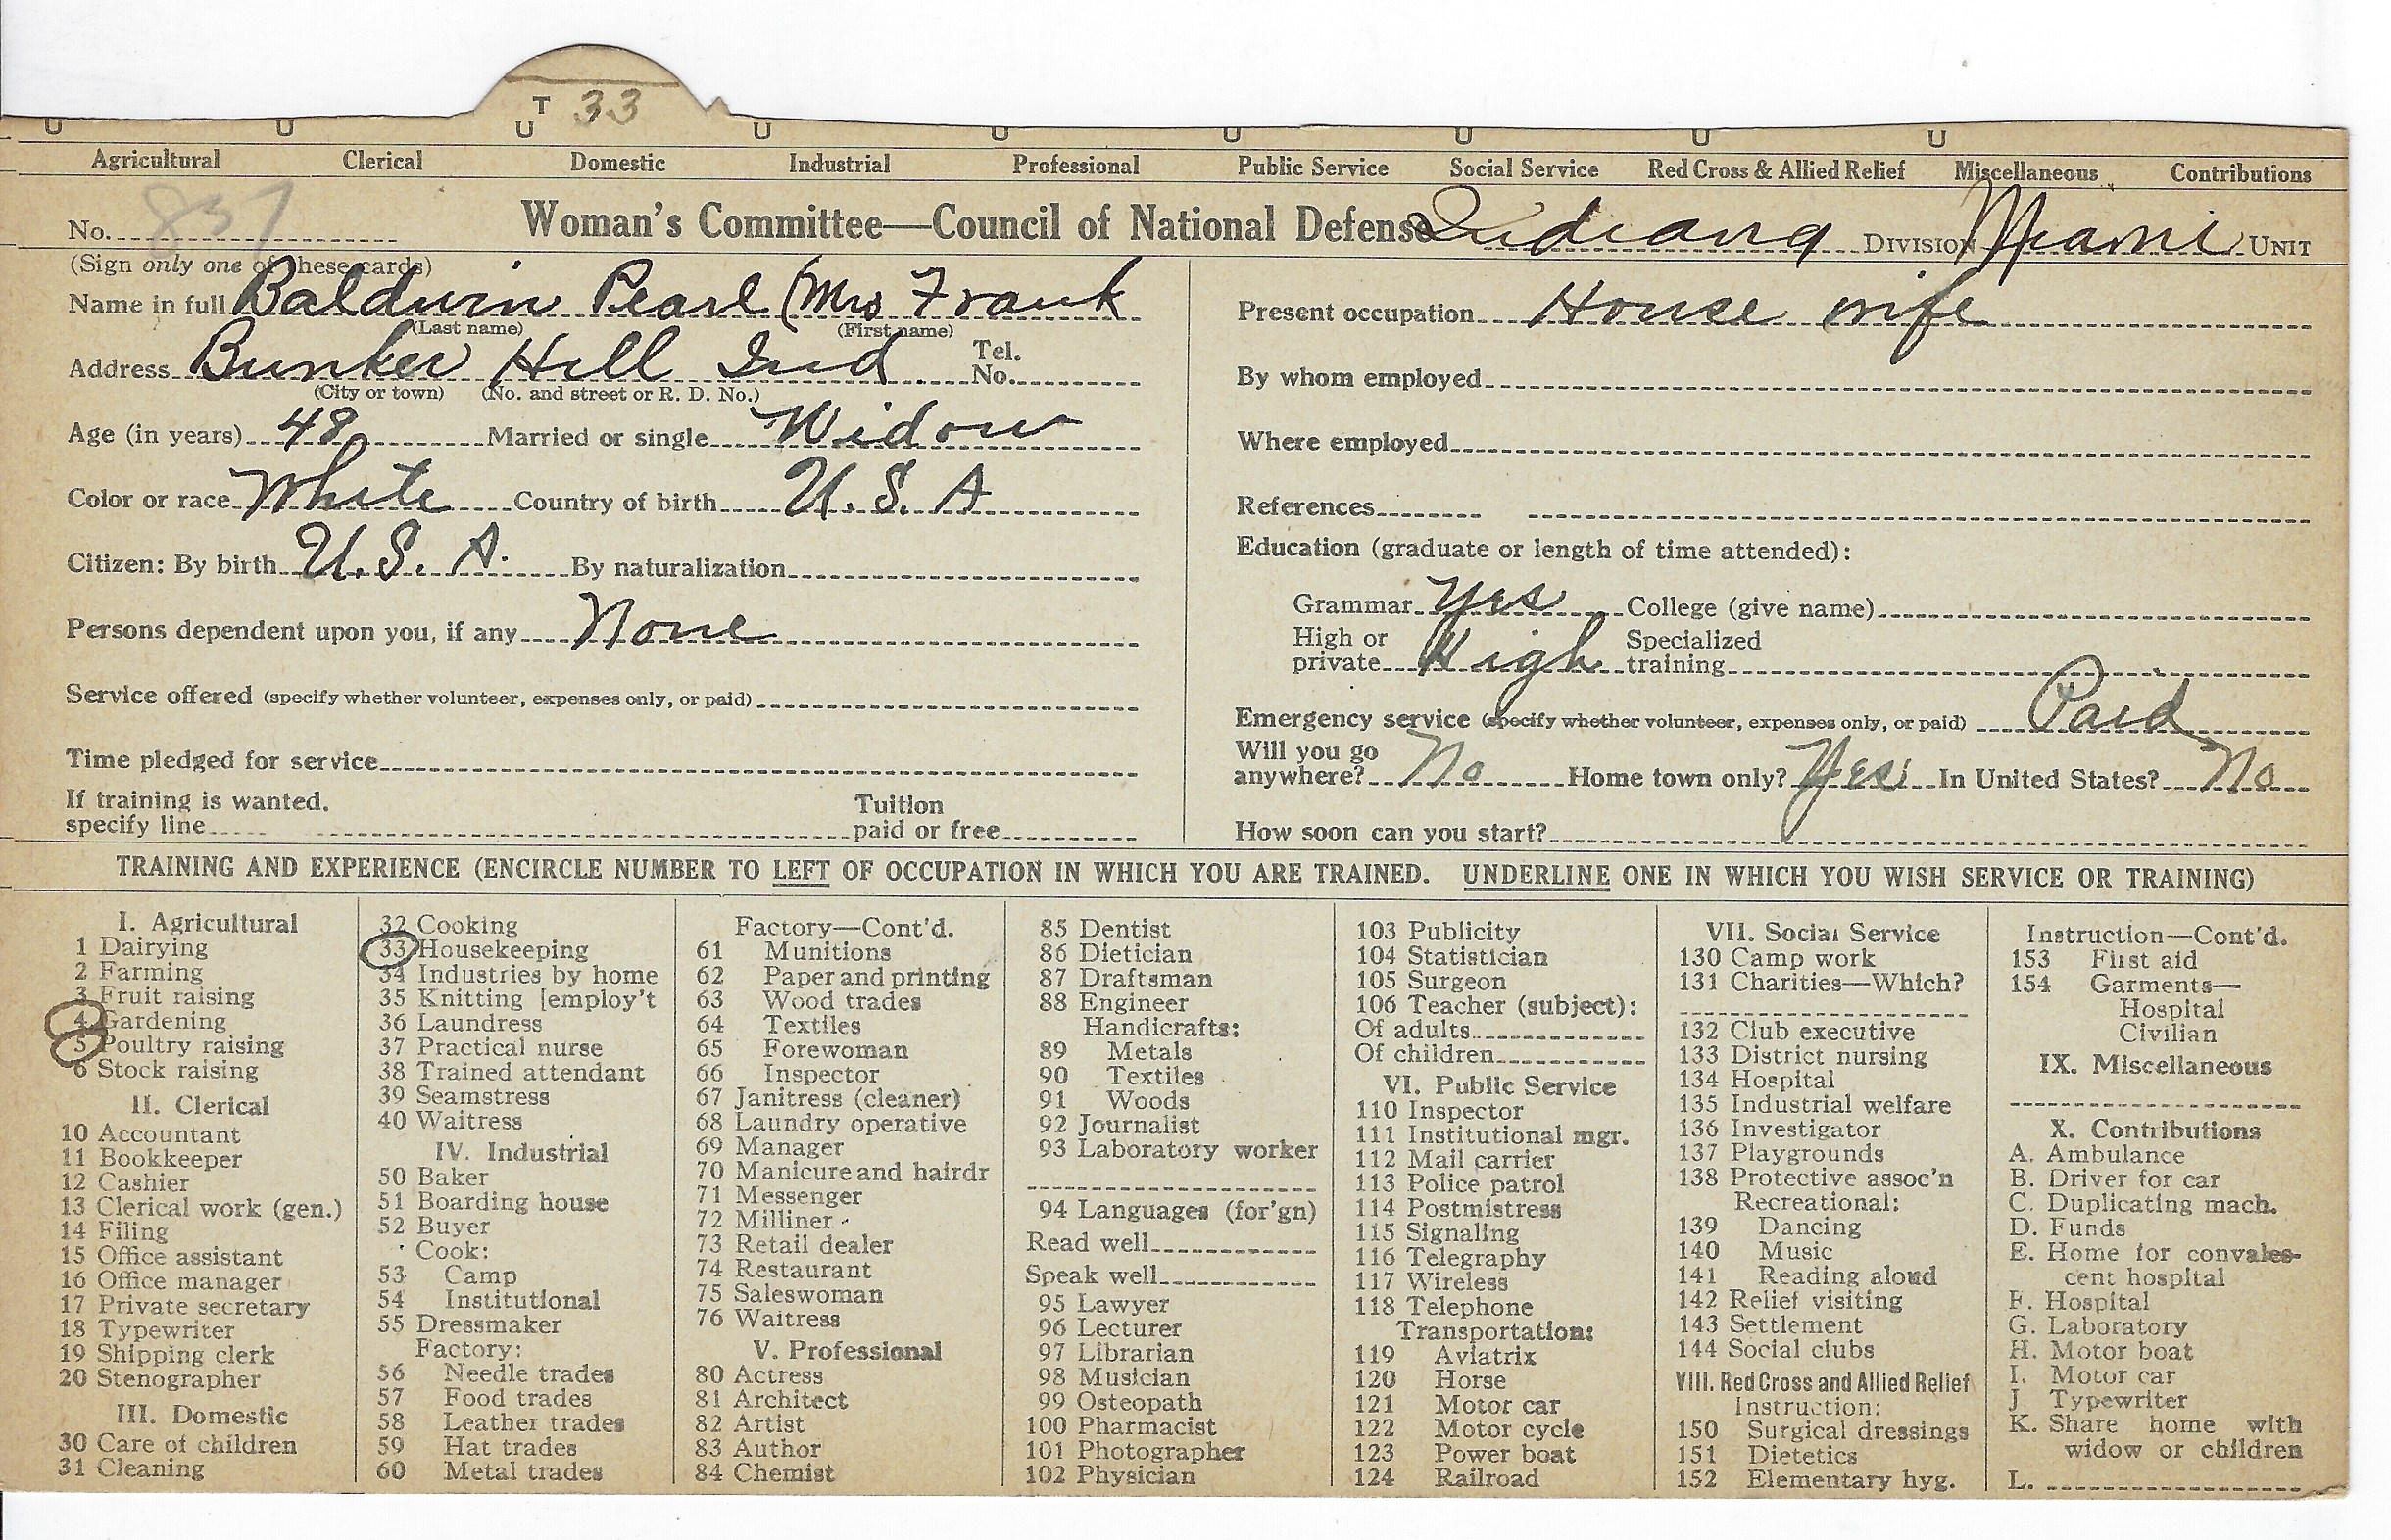 T 33
U U U U U U U U U
Agricultural Clerical Domestic Industrial Professional Public Service Social Service Red Cross & Allied Relief Miscellaneous Contributions
No. 837 Woman's Committee—Council of National Defense Indiana DIVISION Miami UNIT
(Sign only one of these cards)
Name in full Baldwin Pearl (Mrs Frank
(Last name) (First name)
Address Bunker Hill Ind Tel. No.
(City or town) (No. and street or R. D. No.)
Age (in years) 48 Married or single Widow
Color or race White Country of birth U.S.A
Citizen: By birth U.S.A. By naturalization
Persons dependent upon you, if any None
Service offered (specify whether volunteer, expenses only, or paid)
Time pledged for service
If training is wanted.
specify line Tuition paid or free
Present occupation House wife
By whom employed
Where employed
References
Education (graduate or length of time attended):
Grammar Yes College (give name)
High or private High Specialized training
Emergency service (specify whether volunteer, expenses only, or paid) Paid
Will you go anywhere? No Home town only? Yes In United States? No
How soon can you start?
TRAINING AND EXPERIENCE (ENCIRCLE NUMBER TO LEFT OF OCCUPATION IN WHICH YOU ARE TRAINED. UNDERLINE ONE IN WHICH YOU WISH SERVICE OR TRAINING)
I. Agricultural
1 Dairying
2 Farming
3 Fruit raising
4 Gardening
5 Poultry raising
6 Stock raising
II. Clerical
10 Accountant
11 Bookkeeper
12 Cashier
13 Clerical work (gen.)
14 Filing
15 Office assistant
16 Office manager
17 Private secretary
18 Typewriter
19 Shipping clerk
20 Stenographer
III. Domestic
30 Care of children
31 Cleaning
32 Cooking
33 Housekeeping
34 Industries by home
35 Knitting [employ't
36 Laundress
37 Practical nurse
38 Trained attendant
39 Seamstress
40 Waitress
IV. Industrial
50 Baker
51 Boarding house
52 Buyer
Cook:
53 Camp
54 Institutional
55 Dressmaker
Factory:
56 Needle trades
57 Food trades
58 Leather trades
59 Hat trades
60 Metal trades
Factory—Cont'd.
61 Munitions
62 Paper and printing
63 Wood trades
64 Textiles
65 Forewoman
66 Inspector
67 Janitress (cleaner)
68 Laundry operative
69 Manager
70 Manicure and hairdr
71 Messenger
72 Milliner
73 Retail dealer
74 Restaurant
75 Saleswoman
76 Waitress
V. Professional
80 Actress
81 Architect
82 Artist
83 Author
84 Chemist
85 Dentist
86 Dietician
87 Draftsman
88 Engineer
Handicrafts:
89 Metals
90 Textiles
91 Woods
92 Journalist
93 Laboratory worker
94 Languages (for'gn)
Read well
Speak well
95 Lawyer
96 Lecturer
97 Librarian
98 Musician
99 Osteopath
100 Pharmacist
101 Photographer
102 Physician
103 Publicity
104 Statistician
105 Surgeon
106 Teacher (subject):
Of adults
Of children
VI. Public Service
110 Inspector
111 Institutional mgr.
112 Mail carrier
113 Police patrol
114 Postmistress
115 Signaling
116 Telegraphy
117 Wireless
118 Telephone
Transportation:
119 Aviatrix
120 Horse
121 Motor car
122 Motor cycle
123 Power boat
124 Railroad
VII. Social Service
130 Camp work
131 Charities—Which?
132 Club executive
133 District nursing
134 Hospital
135 Industrial welfare
136 Investigator
137 Playgrounds
138 Protective assoc'n
Recreational:
139 Dancing
140 Music
141 Reading aloud
142 Relief visiting
143 Settlement
144 Social clubs
VIII. Red Cross and Allied Relief
Instruction:
150 Surgical dressings
151 Dietetics
152 Elementary hyg.
Instruction—Cont'd.
153 First aid
154 Garments—
Hospital
Civilian
IX. Miscellaneous
X. Contributions
A. Ambulance
B. Driver for car
C. Duplicating mach.
D. Funds
E. Home for convales-
cent hospital
F. Hospital
G. Laboratory
H. Motor boat
I. Motor car
J Typewriter
K. Share home with
widow or children
L.